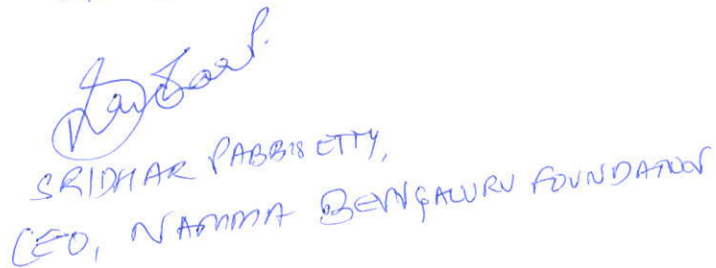 SRIDHAR PABBISETTY,
CEO, NAMMA BENGALURU FOUNDATION